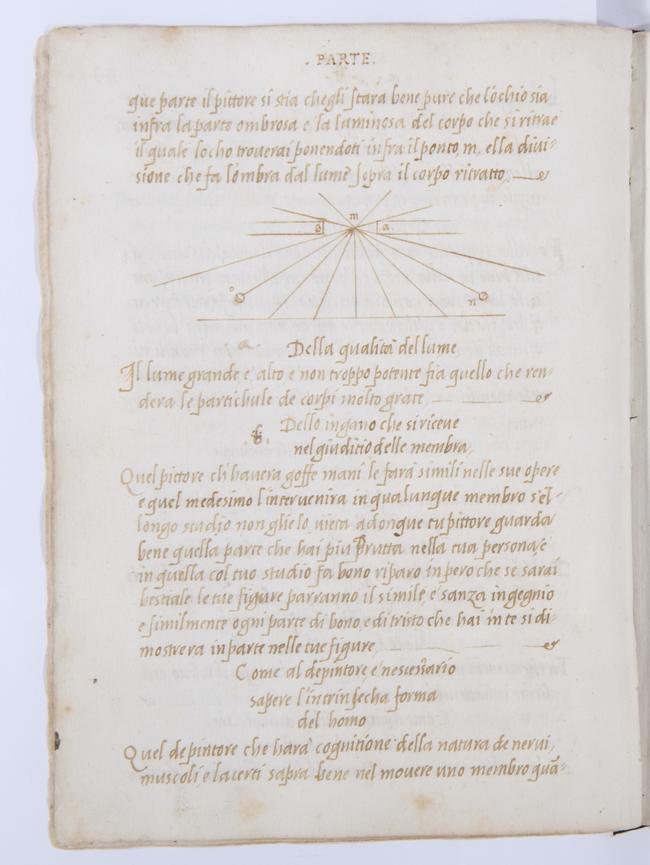 . PARTE.
que parte il pittore si stia chegli stara bene pure che lochio sia
infra la parte ombrosa e la luminosa del corpo che si ritrae
il quale locho troverai ponendoti infra il ponto, m, ella divi-
sione che fa lombra dal lume sopra il corpo ritratto
m
a
o
n
a
Della qualita del lume
Il lume grande, e alto, e non troppo potente fia quello che ren-
dera le partichule de corpi molto grate
Dello inganno che si riceve
nel giuditio delle membra,
Quel pittore ch havera goffe mani le fara simili nelle sue opere
e quel medesimo l'intervenira in qualunque membro s'el-
longo studio non glie lo vieta adonque tu pittore guarda
bene quella parte che hai piu brutta nella tua persona, e
in quella col tuo studio fa bono riparo in pero che se sarai
bestiale le tue figure parranno il simile, e sanza ingegnio
e similmente ogni parte di bono, e di tristo che hai in te si di-
mostrera in parte nelle tue figure
Come al depintore e nescessario
sapere l'intrinsecha forma
del homo
Quel depintore che hara cognitione della natura de nervi,
muscoli, e lacerti sapra bene nel movere uno membro quã-